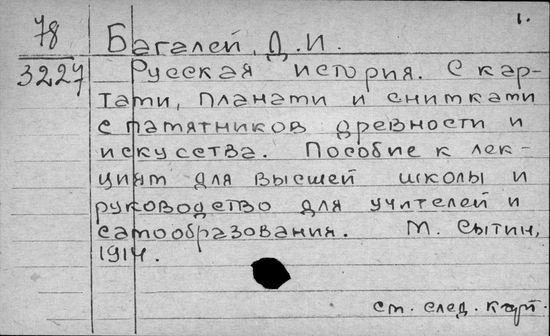 1.
78
3227
Багалей, Д. И.
Русская история. С кар-
тами, планами и снимками
с памятников древности и
искусства. Пособие к лек-
циям для высшей школы и
руководство для учителей и
самообразования. М. Сытин,
1914.
см. след. карт.